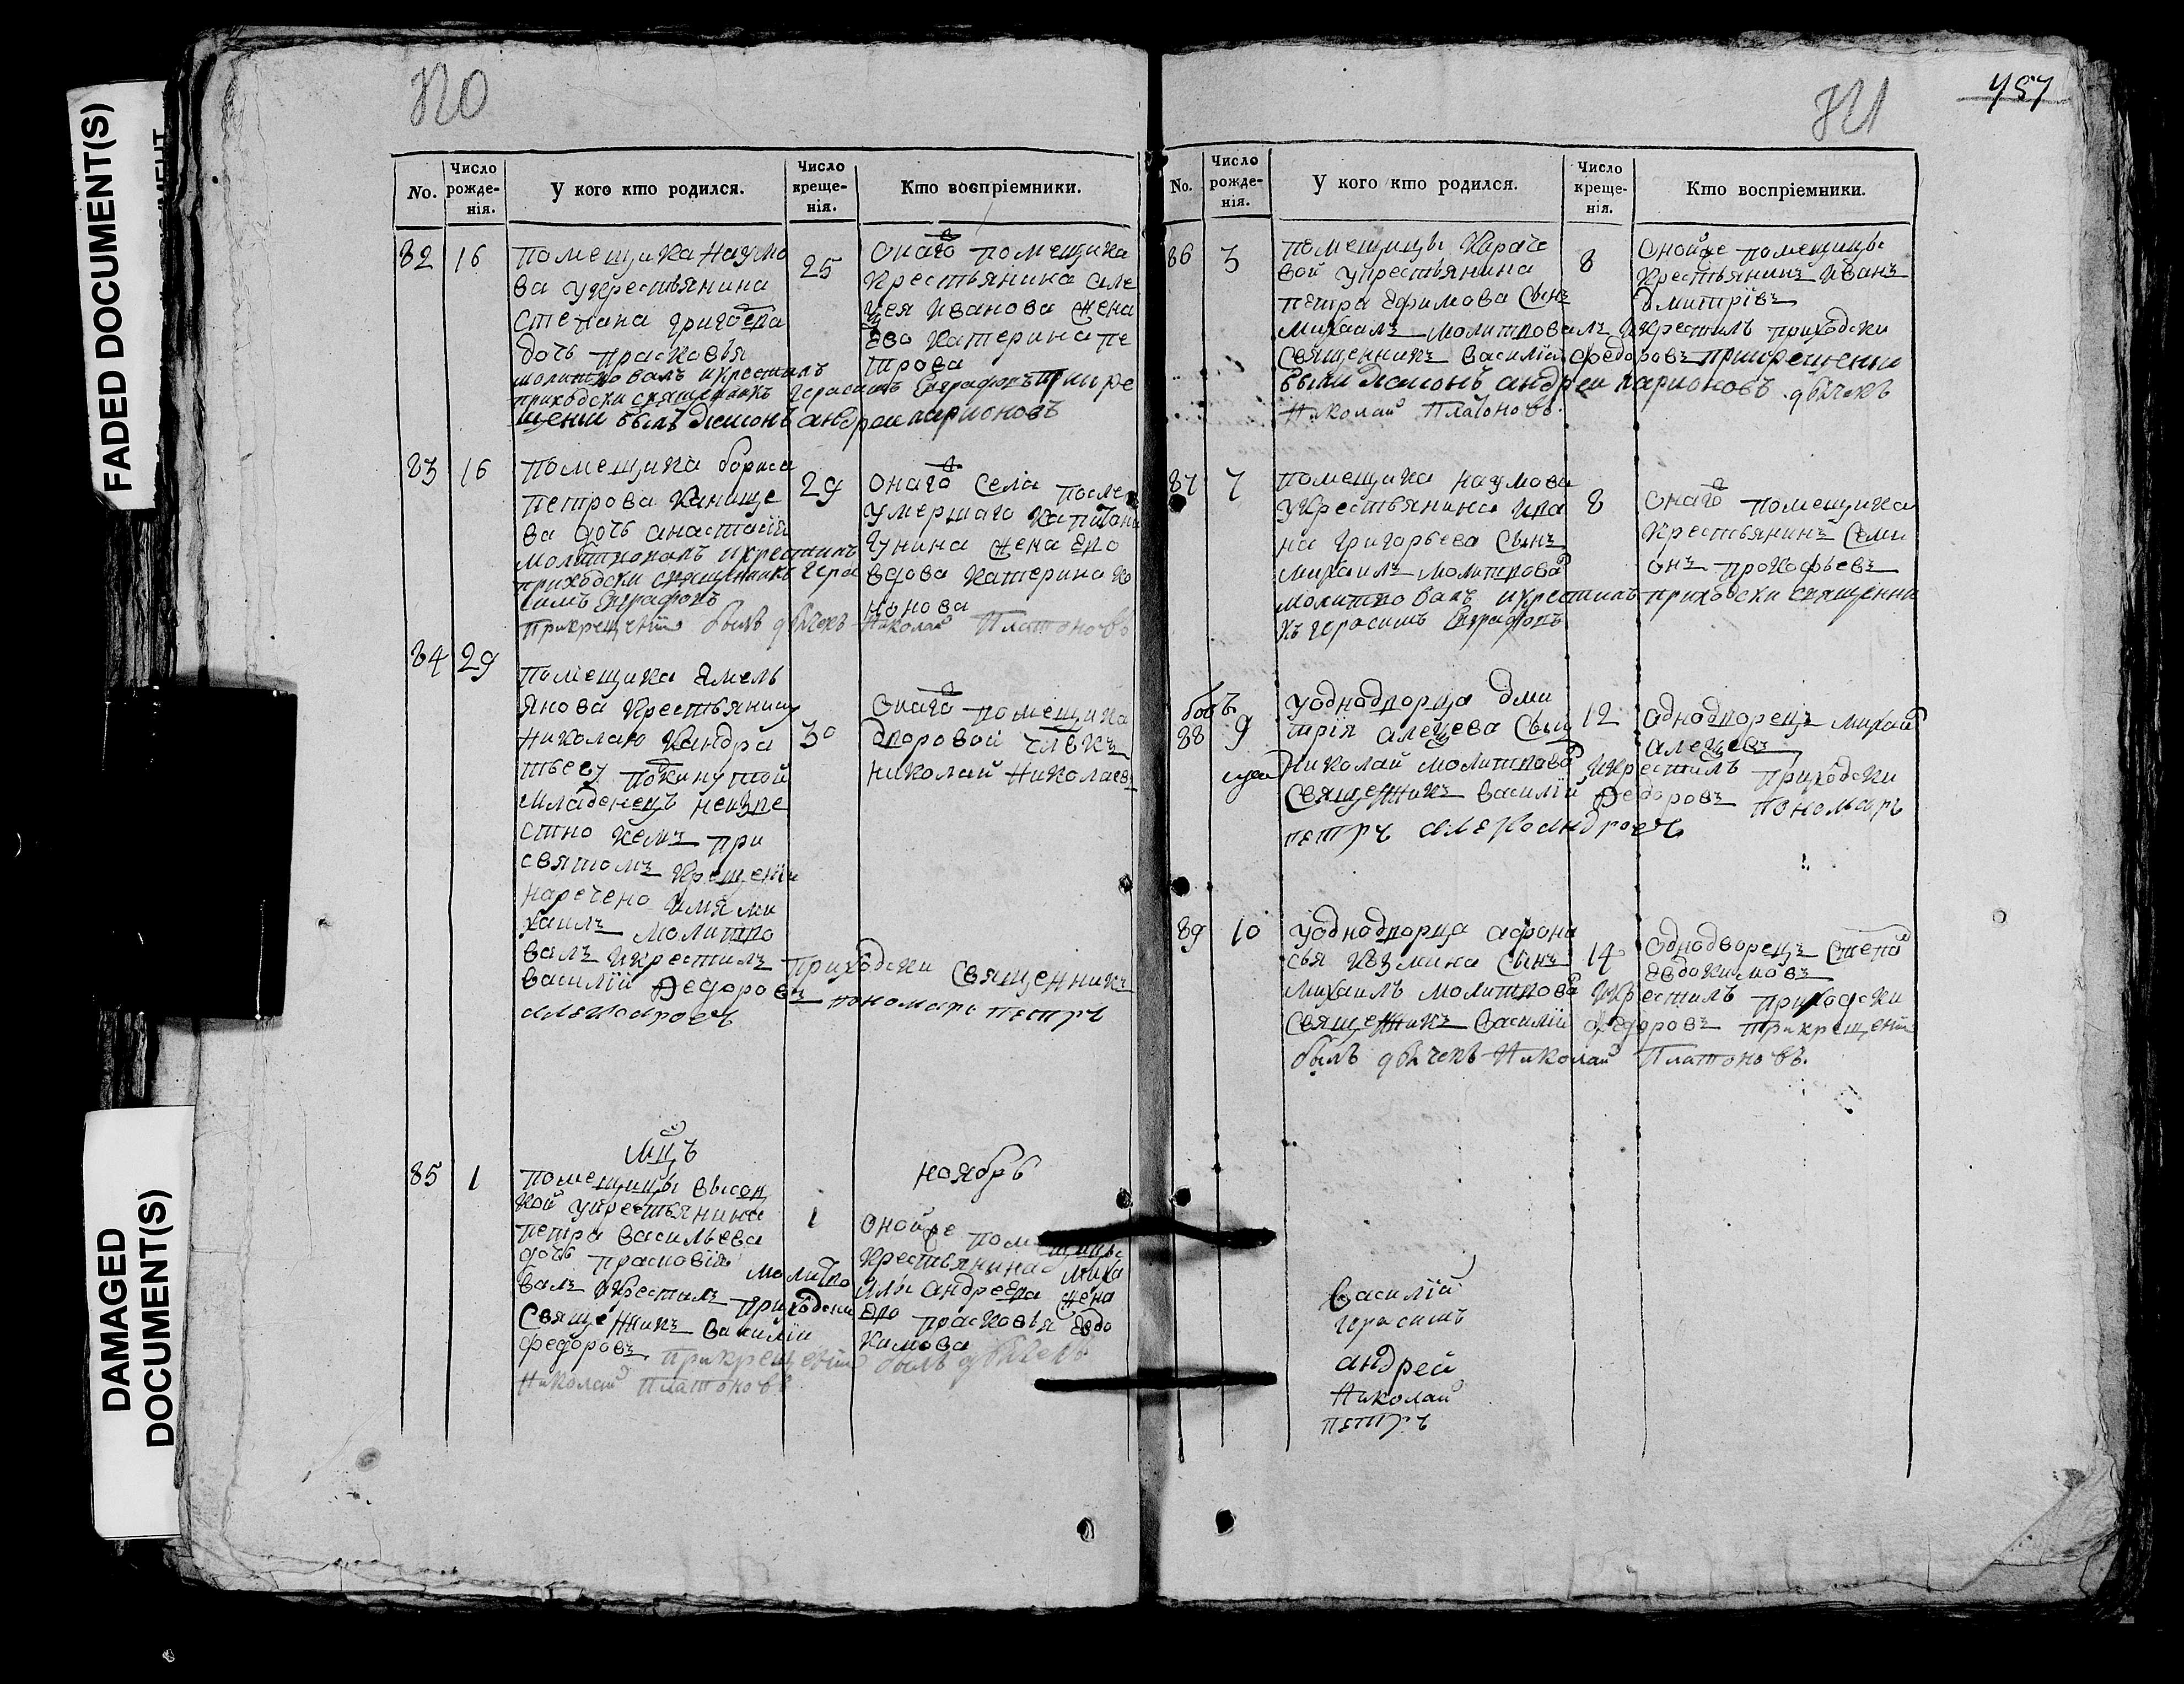 FADED DOCUMENT(S)
DAMAGED
DOCUMENT(S)
820
No.
Число рожде-нія.
У кого кто родился.
Число креще-нія.
Кто воспріемники.
82 16
помещика Наумо
ва укрестьянина
Степана григоева
дочь прасковья
молитвовалъ икрестилъ
приходски священникъ Герасимъ Евграфовъ прикре
щении былъ диаконъ андреи ларионовъ
25
Онаго помещика
крестьянина Але
Ѯея Иванова Жена
Ево Катерина пе
трова
83 16
помещика бориса
петрова Канище
ва дочь анастасія
молитвовалъ икрестилъ
приходски священникъ Гера
симъ Евграфовъ
прикрещеніи былъ дьячекъ Николай Платоновъ
29
Онаго Села после
умершаго капитона
гунина Жена Ево
вдова Катерина
нонова
84 29
помещика Емель
янова крестьянину
Николаю Кандра
тьеву покинутой
младенецъ неизве
стно кемъ при
святомъ крещеніи
наречено имя ми
хаилъ молитво
валъ икрестилъ приходски Священникъ
василій Федоровъ пономарь петръ
30
Онаго помещика
дворовой члвкъ
николай Николаевъ
мцъ ноябрь
85 1
помещицы высоц
кой укрестьянина
петра васильева
дочь прасковія молитво
валъ икрестилъ приходски
Священникъ василій
Федоровъ прикрещеніи былъ дьячекъ
Николай Платоновъ
1
Онойже помещицы
крестьянина миха
илы андреева жена
Ево прасковья Евдо
кимова
821
457
No.
Число рожде-нія.
У кого кто родился.
Число креще-нія.
Кто воспріемники.
86 3
помещицы Караче
вой укрестьянина
петра Ефимова Сынъ
михаилъ молитвовалъ икрестилъ приходски
Священникъ василій Федоровъ прикрещении
были диаконъ андреи ларионовъ дьячекъ
Николай Платоновъ.
8
Онойже помещицы
крестьянинъ Иванъ
Дмитріевъ
87 7
помещика наумова
укрестьянина ива
на григорьева Сынъ
михаилъ молитвова
молитвовалъ икрестилъ приходски священни
къ герасимъ Евграфовъ
8
Онаго помещика
крестьянинъ Семи
онъ прокофьевъ
88 9
уоднодворца дми
трія алеѯева Сынъ
Николай молитвова икрестилъ приходски
Священникъ василій Федоровъ пономарь
петръ александровъ
12
Однодворецъ михай
алеѯевъ
89 10
уоднодворца афона
сья кузмина Сынъ
михаилъ молитвова икрестилъ приходски
Священникъ василій федоровъ прикрещеніи
былъ дьячекъ Николай Платоновъ.
14
Однодворецъ Степа
Евдокимовъ
василій
герасимъ
андрей
Николай
петръ